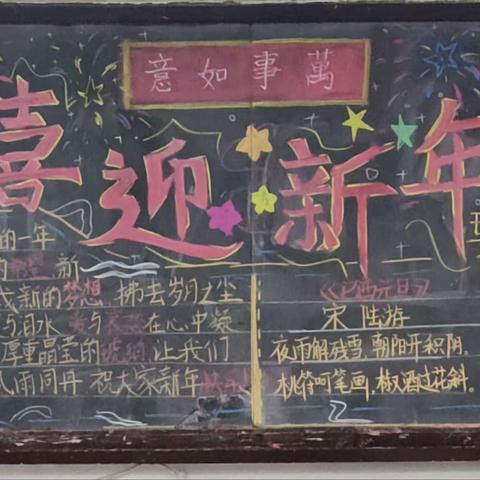 意如事萬
喜迎新年
的一年
的希望 新
找新的梦想 拂去岁月之尘
与泪水 与 在心中凝
厚重晶莹的琥珀,让我们
风雨同丹 祝大家新年
《己酉元日》
宋 陆游
夜雨解残雪,朝阳开积阴。
桃符呵笔画,椒酒过花斜。